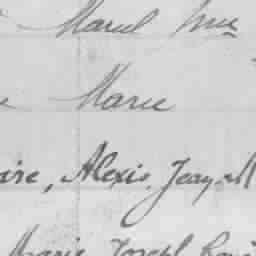 Marcel
Marie
aire, Alexis, Jean, M
Marie Joseph